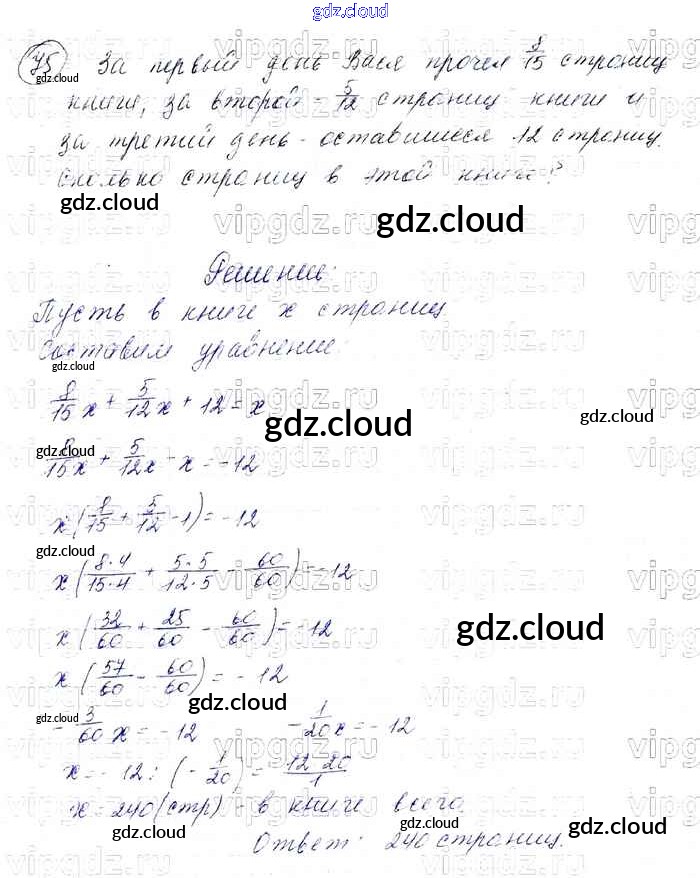 gdz.cloud
75 За первый день Вася прочел 8/15 страниц
gdz.cloud
книги, за второй - 5/12 страниц книги и
за третий день - оставшиеся 12 страниц.
Сколько страниц в этой книге?
gdz.cloud gdz.cloud
Решение:
Пусть в книге x страниц
Составим уравнение:
gdz.cloud
8/15 x + 5/12 x + 12 = x
gdz.cloud gdz.cloud
8/15 x + 5/12 x - x = -12
gdz.cloud
x (8/15 + 5/12 - 1) = -12
gdz.cloud
x (8·4/15·4 + 5·5/12·5 - 60/60) = -12
x (32/60 + 25/60 - 60/60) = -12
gdz.cloud gdz.cloud
x (57/60 - 60/60) = -12
gdz.cloud
gdz.cloud
- 3/60 x = -12 - 1/20 x = -12
x = -12 : (- 1/20) = 12·20/1
x = 240 (стр) - в книге всего
gdz.cloud gdz.cloud gdz.cloud
Ответ: 240 страниц.